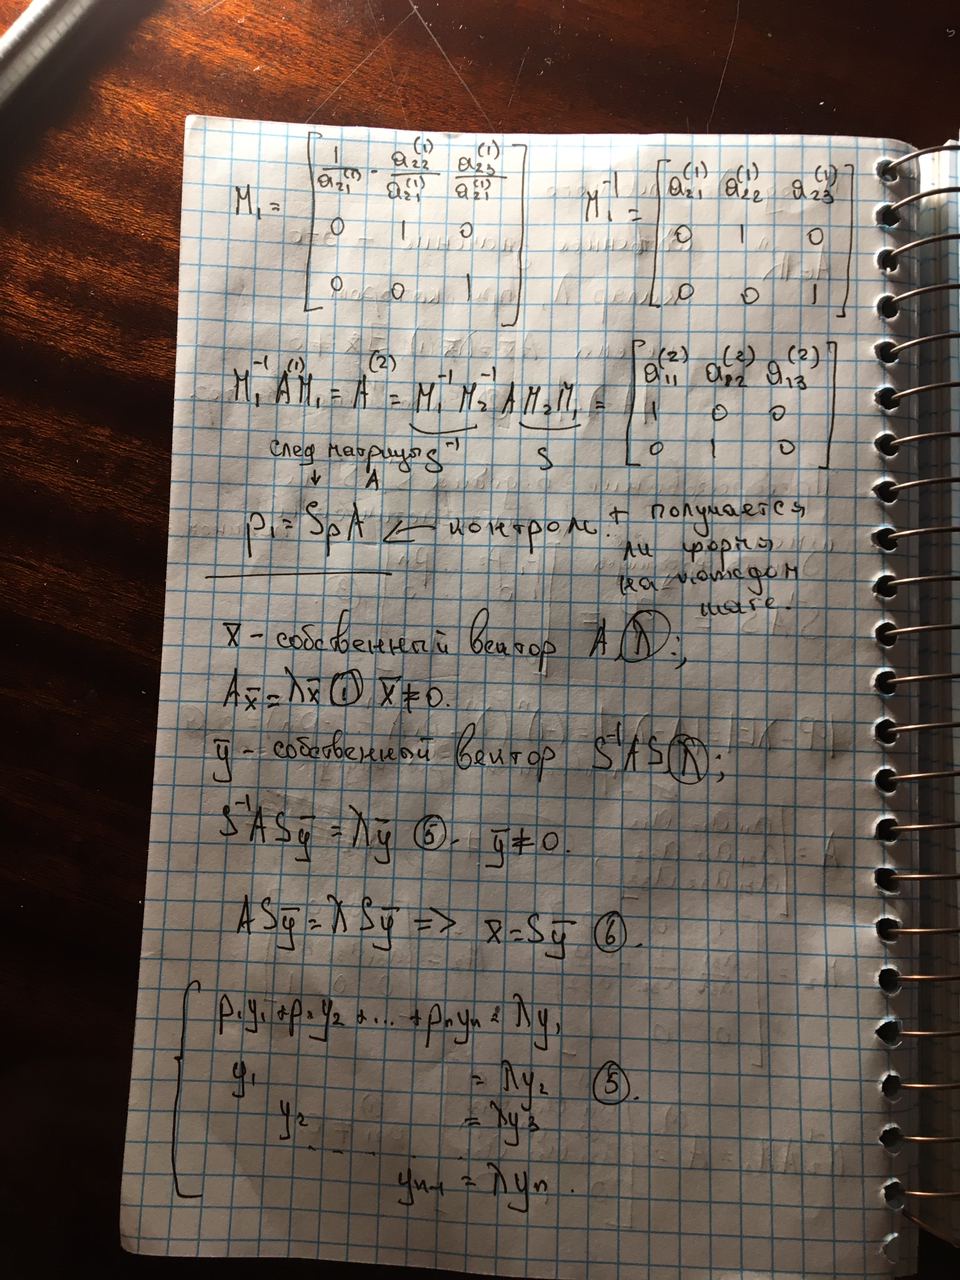 M₁ = [ 1/a₂₁⁽¹⁾ - a₂₂⁽¹⁾/a₂₁⁽¹⁾ a₂₃⁽¹⁾/a₂₁⁽¹⁾ M₁⁻¹ = [ a₂₁⁽¹⁾ a₂₂⁽¹⁾ a₂₃⁽¹⁾
0 1 0 0 1 0
0 0 1 ] 0 0 1 ]
M₁⁻¹ A⁽¹⁾ M₁ = A⁽²⁾ = M₁⁻¹ M₂⁻¹ A M₂ M₁ = [ a₁₁⁽²⁾ a₁₂⁽²⁾ a₁₃⁽²⁾
1 0 0
0 1 0 ]
след матрицы S⁻¹ S
↓ A
p₁ = Sp A ← контрол. + получается
ли форма
на каждом
шаге.
x̄ - собственный вектор A (λ);
Ax̄ = λx̄ (1) x̄ ≠ 0.
ȳ - собственный вектор S⁻¹AS (λ);
S⁻¹ASȳ = λȳ (5). ȳ ≠ 0.
ASȳ = λSȳ => x̄ = Sȳ (6).
{ p₁y₁ + p₂y₂ + ... + pₙyₙ = λy₁
y₁ = λy₂ (5).
y₂ = λy₃
- - - - - - -
yₙ₋₁ = λyₙ.